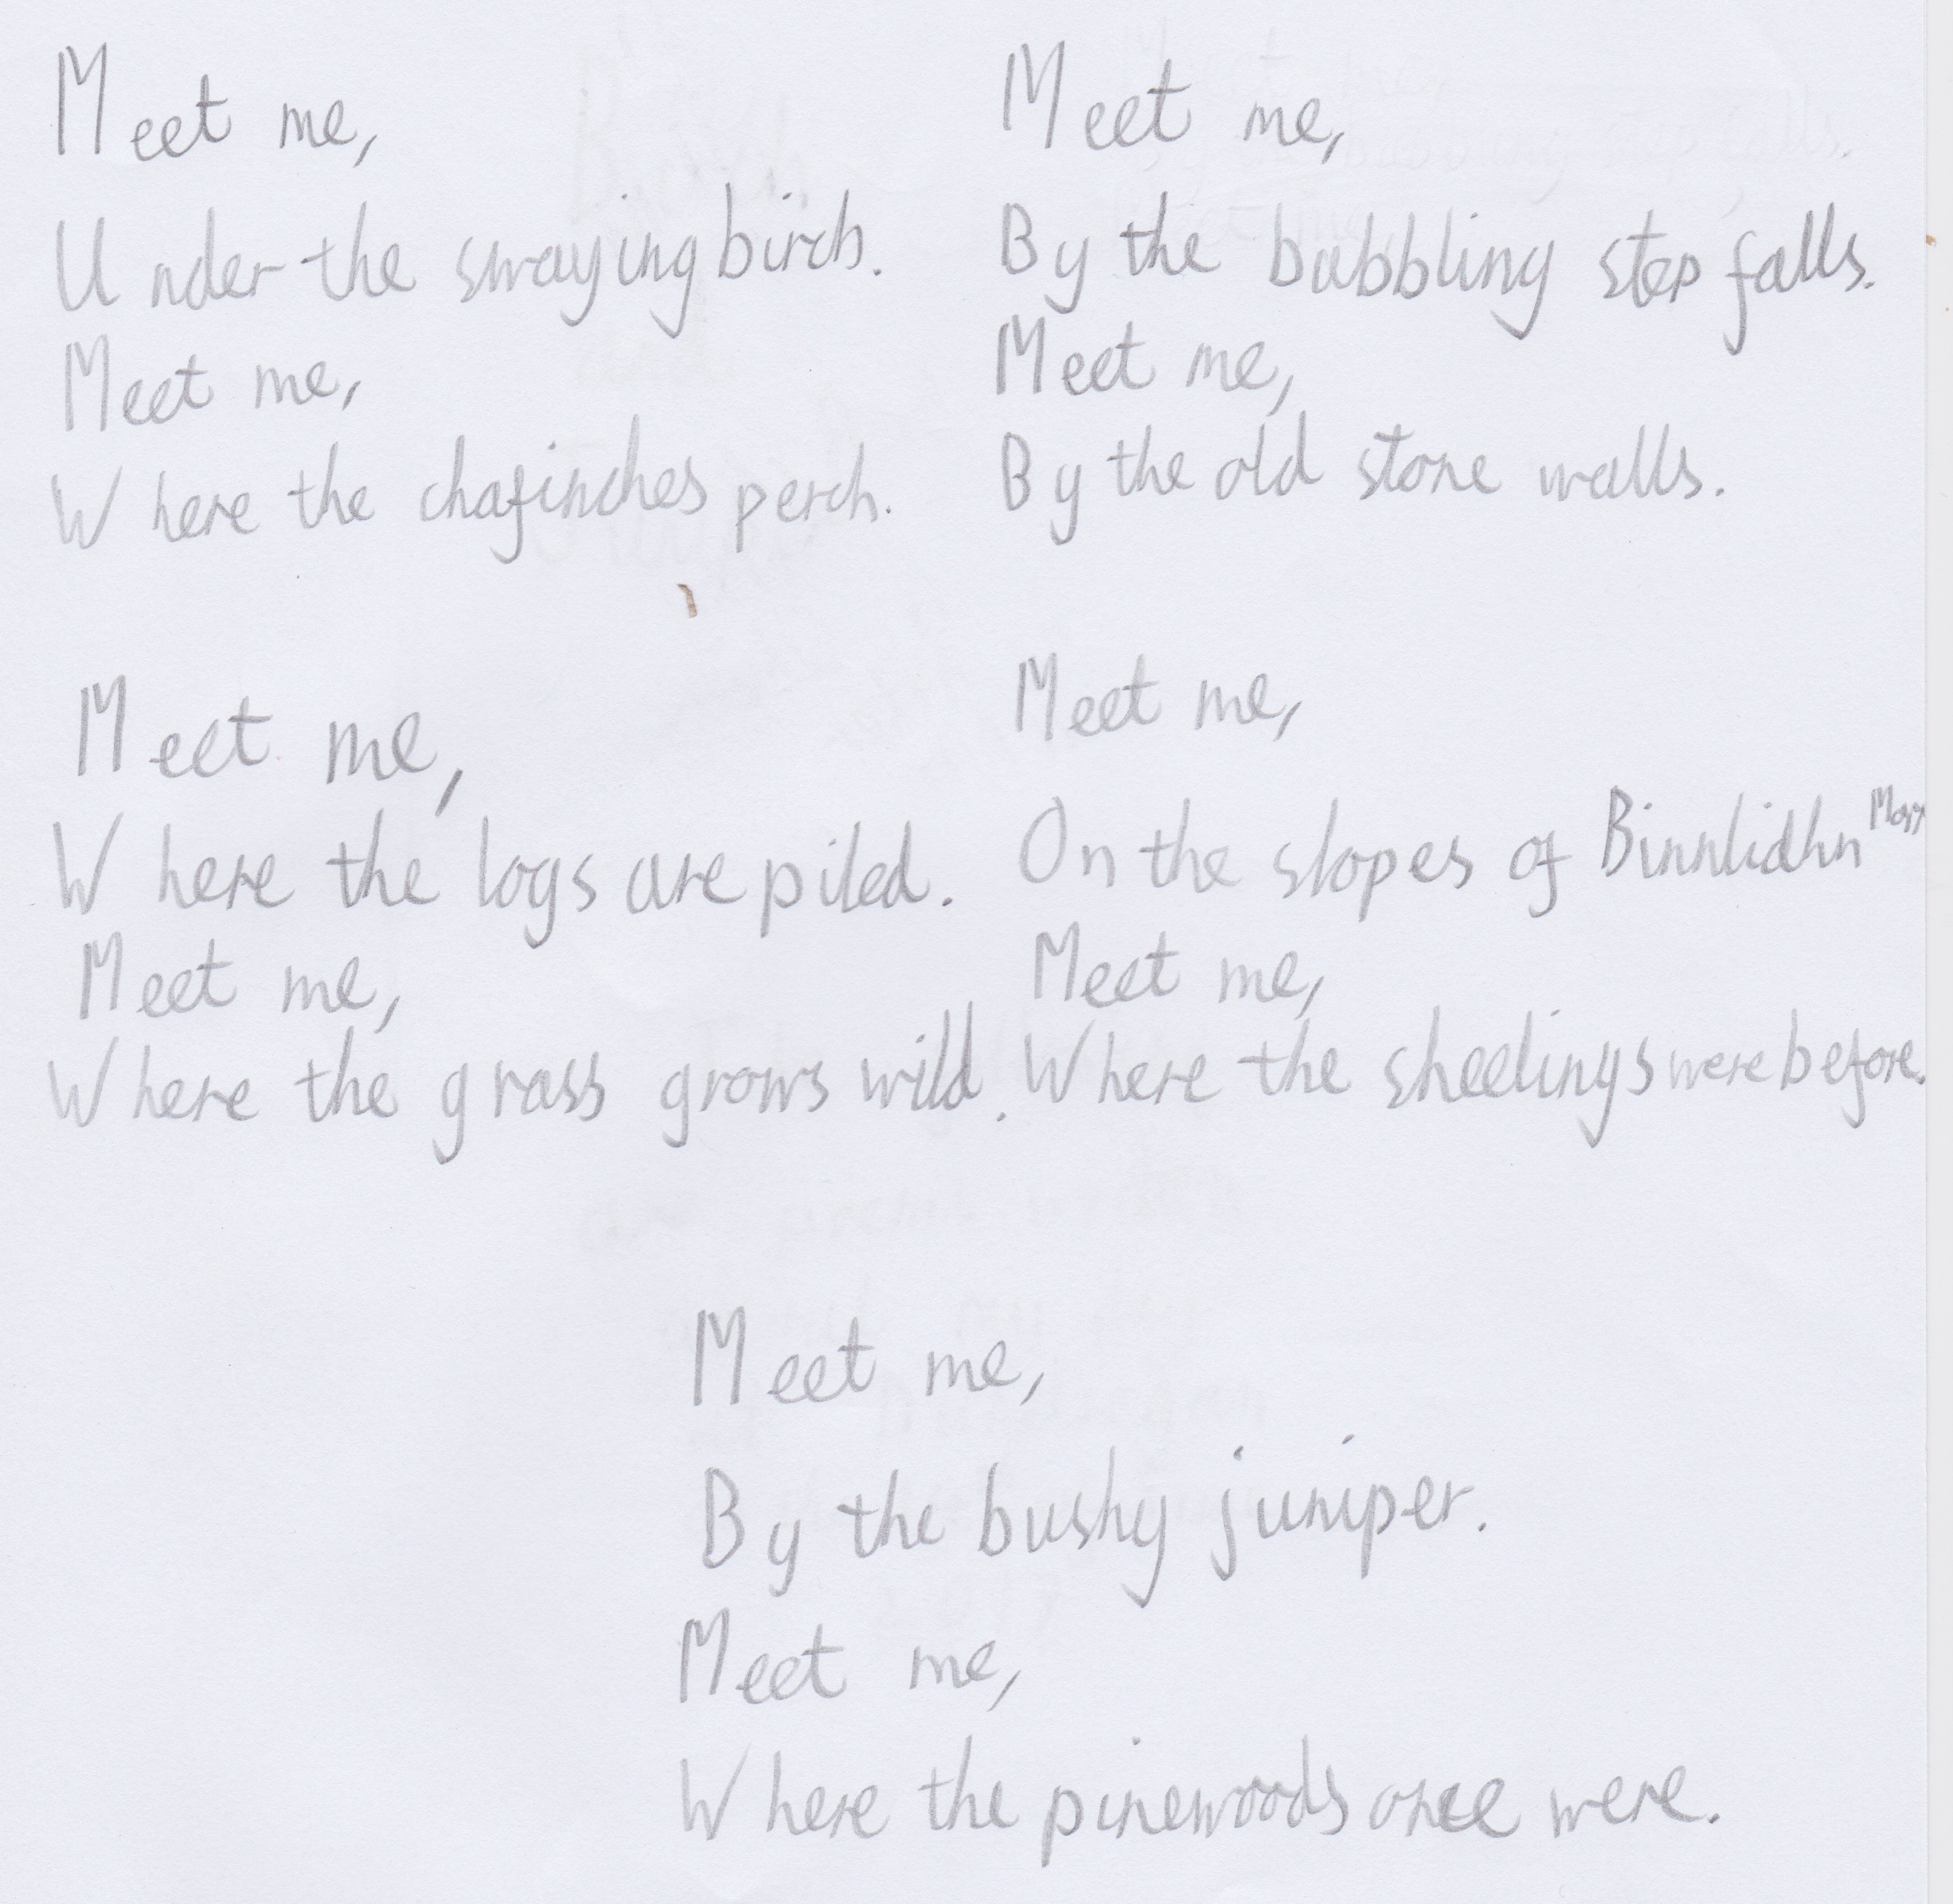 Meet me,
Under the swaying birch.
Meet me,
Where the chafinches perch.
Meet me,
By the bubbling step falls.
Meet me,
By the old stone walls.
Meet me,
Where the logs are piled.
Meet me,
Where the grass grows wild.
Meet me,
On the slopes of Binnlidhn
Meet me,
Where the sheelings were before.
Meet me,
By the bushy juniper.
Meet me,
Where the pinewoods once were.